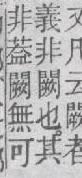 又凡云闕者
義非闕也其
非葢闕無可